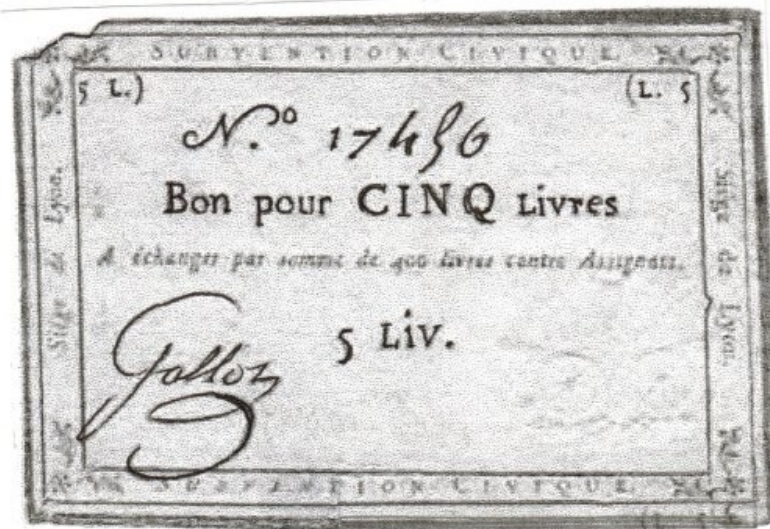 SUBVENTION CIVIQUE
5 L.) (L. 5
N.º 17456
Bon pour CINQ Livres
A échanger par somme de 400 livres contre Assignats.
5 Liv.
Gallon
Siège de Lyon.
Siège de Lyon.
SUBVENTION CIVIQUE